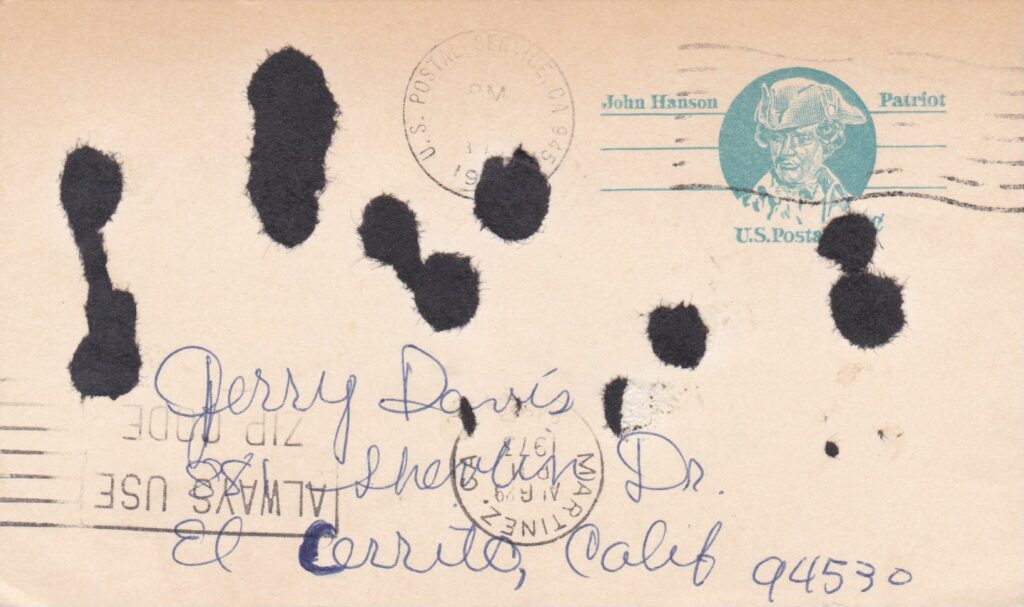 U.S. POSTAL SERVICE, CA 945
PM
19
John Hanson Patriot
U.S.Posta
Jerry Davis
881 Shevlin Dr.
El Cerrito, Calif 94530
ALWAYS USE
ZIP CODE
MARTINEZ,
PM
1973